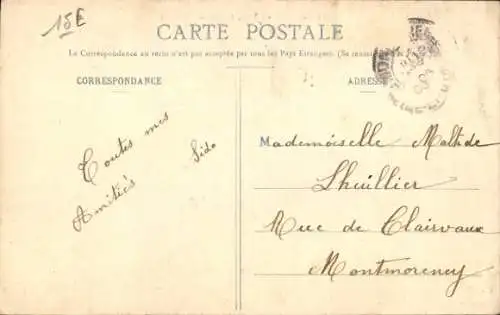 15€
CARTE POSTALE
La Correspondance au recto n'est pas acceptée par tous les Pays Etrangers. (Se
CORRESPONDANCE
ADRESSE
Toutes mes
Amitiés
Sido
Mademoiselle Matilde
Lhuillier
Rue de Clairvaux
Montmorency